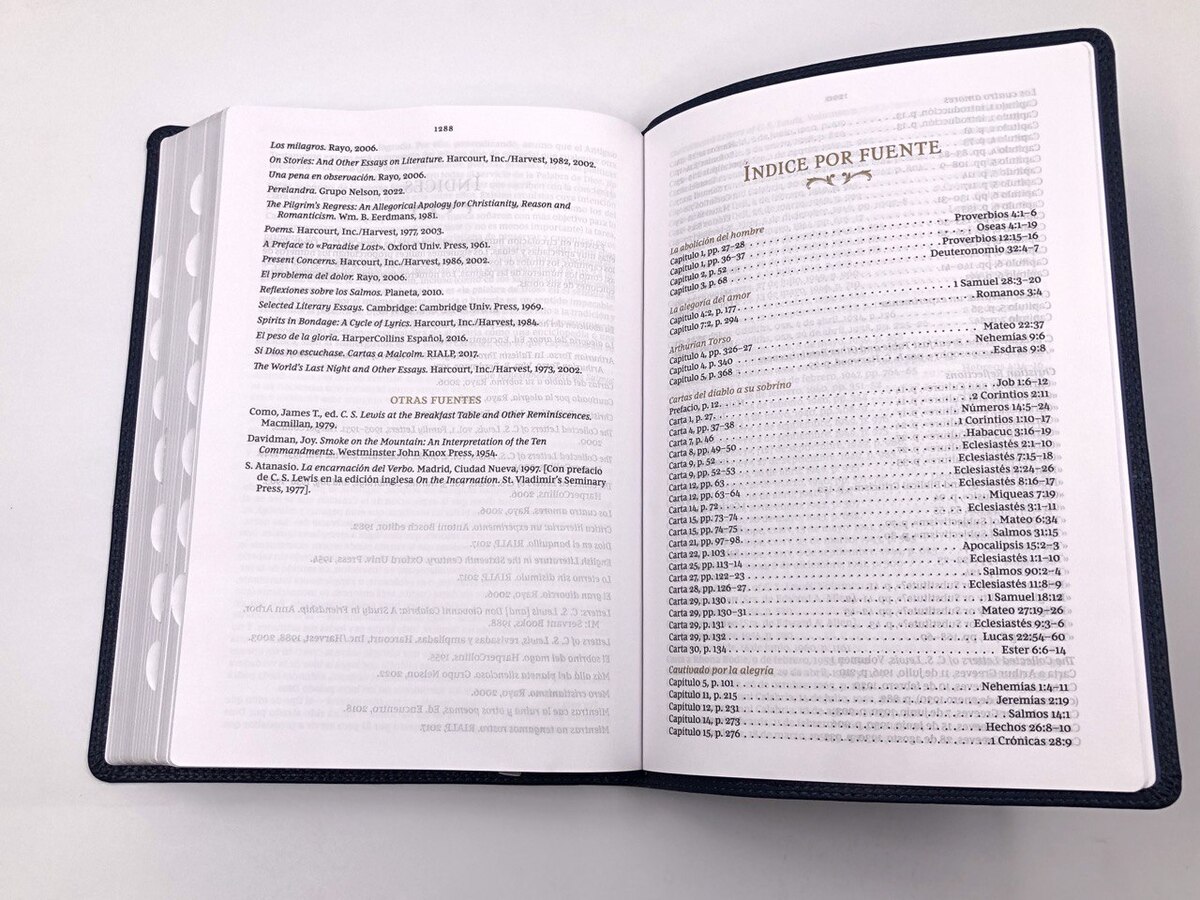 1288
Los milagros. Rayo, 2006.
On Stories: And Other Essays on Literature. Harcourt, Inc./Harvest, 1982, 2002.
Una pena en observación. Rayo, 2006.
Perelandra. Grupo Nelson, 2022.
The Pilgrim's Regress: An Allegorical Apology for Christianity, Reason and
Romanticism. Wm. B. Eerdmans, 1981.
Poems. Harcourt, Inc./Harvest, 1977, 2003.
A Preface to «Paradise Lost». Oxford Univ. Press, 1961.
Present Concerns. Harcourt, Inc./Harvest, 1986, 2002.
El problema del dolor. Rayo, 2006.
Reflexiones sobre los Salmos. Planeta, 2010.
Selected Literary Essays. Cambridge: Cambridge Univ. Press, 1969.
Spirits in Bondage: A Cycle of Lyrics. Harcourt, Inc./Harvest, 1984.
El peso de la gloria. HarperCollins Español, 2016.
Si Dios no escuchase. Cartas a Malcolm. RIALP, 2017.
The World's Last Night and Other Essays. Harcourt, Inc./Harvest, 1973, 2002.
OTRAS FUENTES
Como, James T., ed. C. S. Lewis at the Breakfast Table and Other Reminiscences.
Macmillan, 1979.
Davidman, Joy. Smoke on the Mountain: An Interpretation of the Ten
Commandments. Westminster John Knox Press, 1954.
S. Atanasio. La encarnación del Verbo. Madrid, Ciudad Nueva, 1997. [Con prefacio
de C. S. Lewis en la edición inglesa On the Incarnation. St. Vladimir's Seminary
Press, 1977].
ÍNDICE POR FUENTE
La abolición del hombre
Capítulo 1, pp. 27–28 Proverbios 4:1–6
Capítulo 1, pp. 36–37 Oseas 4:1–19
Capítulo 2, p. 52 Proverbios 12:15–16
Capítulo 3, p. 68 Deuteronomio 32:4–7
La alegoría del amor
Capítulo 4:2, p. 177 1 Samuel 28:3–20
Capítulo 7:2, p. 294 Romanos 3:4
Arthurian Torso
Capítulo 4, pp. 326–27 Mateo 22:37
Capítulo 4, p. 340 Nehemías 9:6
Capítulo 5, p. 368 Esdras 9:8
Cartas del diablo a su sobrino
Prefacio, p. 12 Job 1:6–12
Carta 1, p. 27 2 Corintios 2:11
Carta 4, pp. 37–38 Números 14:5–24
Carta 7, p. 46 1 Corintios 1:10–17
Carta 8, pp. 49–50 Habacuc 3:16–19
Carta 9, p. 52 Eclesiastés 2:1–10
Carta 9, pp. 52–53 Eclesiastés 7:15–18
Carta 12, p. 63 Eclesiastés 2:24–26
Carta 12, pp. 63–64 Eclesiastés 8:16–17
Carta 14, p. 72 Miqueas 7:19
Carta 15, pp. 73–74 Eclesiastés 3:1–11
Carta 15, pp. 74–75 Mateo 6:34
Carta 21, pp. 97–98 Salmos 31:15
Carta 22, p. 103 Apocalipsis 15:2–3
Carta 25, pp. 113–14 Eclesiastés 1:1–10
Carta 27, pp. 122–23 Salmos 90:2–4
Carta 28, pp. 126–27 Eclesiastés 11:8–9
Carta 29, p. 130 1 Samuel 18:12
Carta 29, pp. 130–31 Mateo 27:19–26
Carta 29, p. 131 Eclesiastés 9:3–6
Carta 29, p. 132 Lucas 22:54–60
Carta 30, p. 134 Ester 6:6–14
Cautivado por la alegría
Capítulo 5, p. 101 Nehemías 1:4–11
Capítulo 11, p. 215 Jeremías 2:19
Capítulo 12, p. 231 Salmos 14:1
Capítulo 14, p. 273 Hechos 26:8–10
Capítulo 15, p. 276 1 Crónicas 28:9